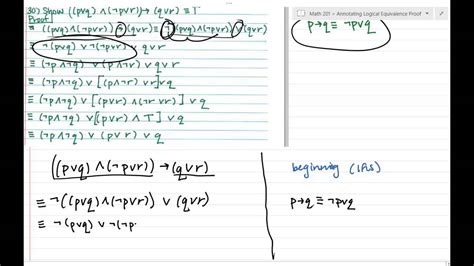 30) Show ((p∨q) ∧(¬p∨r)) → (q∨r) ≡ T
Proof
≡ ((p∨q)∧(¬p∨r)) → (q∨r) ≡ ¬((p∨q)∧(¬p∨r)) ∨ (q∨r)
≡ ¬(p∨q) ∨ ¬(¬p∨r) ∨ q∨r
≡ (¬p∧¬q) ∨ (p∧¬r) ∨ r∨q
≡ (¬p∧¬q) ∨ [(p∧¬r) ∨r]∨q
≡ (¬p∧¬q) ∨ [(p∨r)∧(¬r∨r)]∨q
≡ (¬p∧¬q) ∨ [(p∨r) ∧ T] ∨q
≡ (¬p∧¬q) ∨ (p∨r) ∨ q
Math 201 - Annotating Logical Equivalence Proof
p→q ≡ ¬p∨q
((p∨q)∧(¬p∨r)) → (q∨r)
≡ ¬((p∨q)∧(¬p∨r)) ∨ (q∨r)
≡ ¬(p∨q) ∨ ¬(¬p
beginning (LHS)
p→q ≡ ¬p∨q